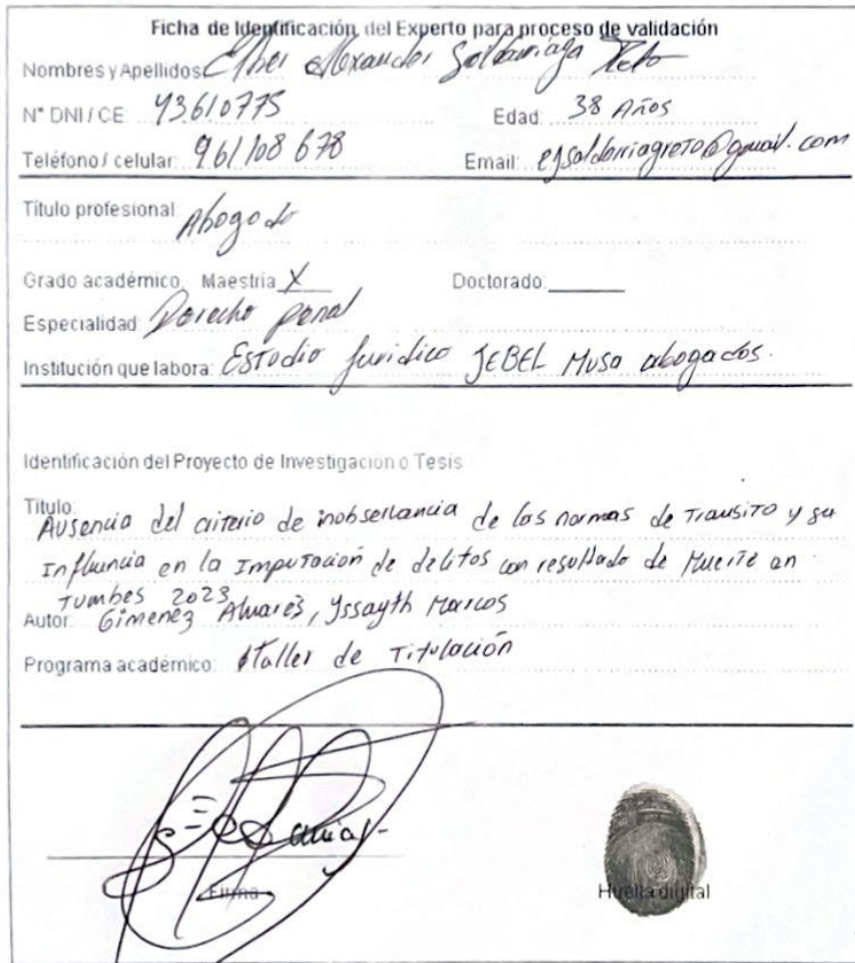 Ficha de Identificación del Experto para proceso de validación
Nombres y Apellidos: Elber Alexander Saldarriaga Reto
N° DNI / CE: 43610775 Edad: 38 Años
Teléfono / celular: 961108678 Email: ejsaldarriagreto@gmail.com
Título profesional: Abogado
Grado académico, Maestría X Doctorado:
Especialidad: Derecho penal
Institución que labora: Estudio Juridico JEBEL Musa abogados.
Identificación del Proyecto de Investigación o Tesis
Título:
Ausencia del criterio de inobservancia de las normas de Transito y su
Influencia en la Imputación de delitos con resultado de Muerte en
Tumbes 2023
Autor: Gimenez Alvares, Yssayth Marcos
Programa académico: Taller de Titulación
Firma
Huella digital